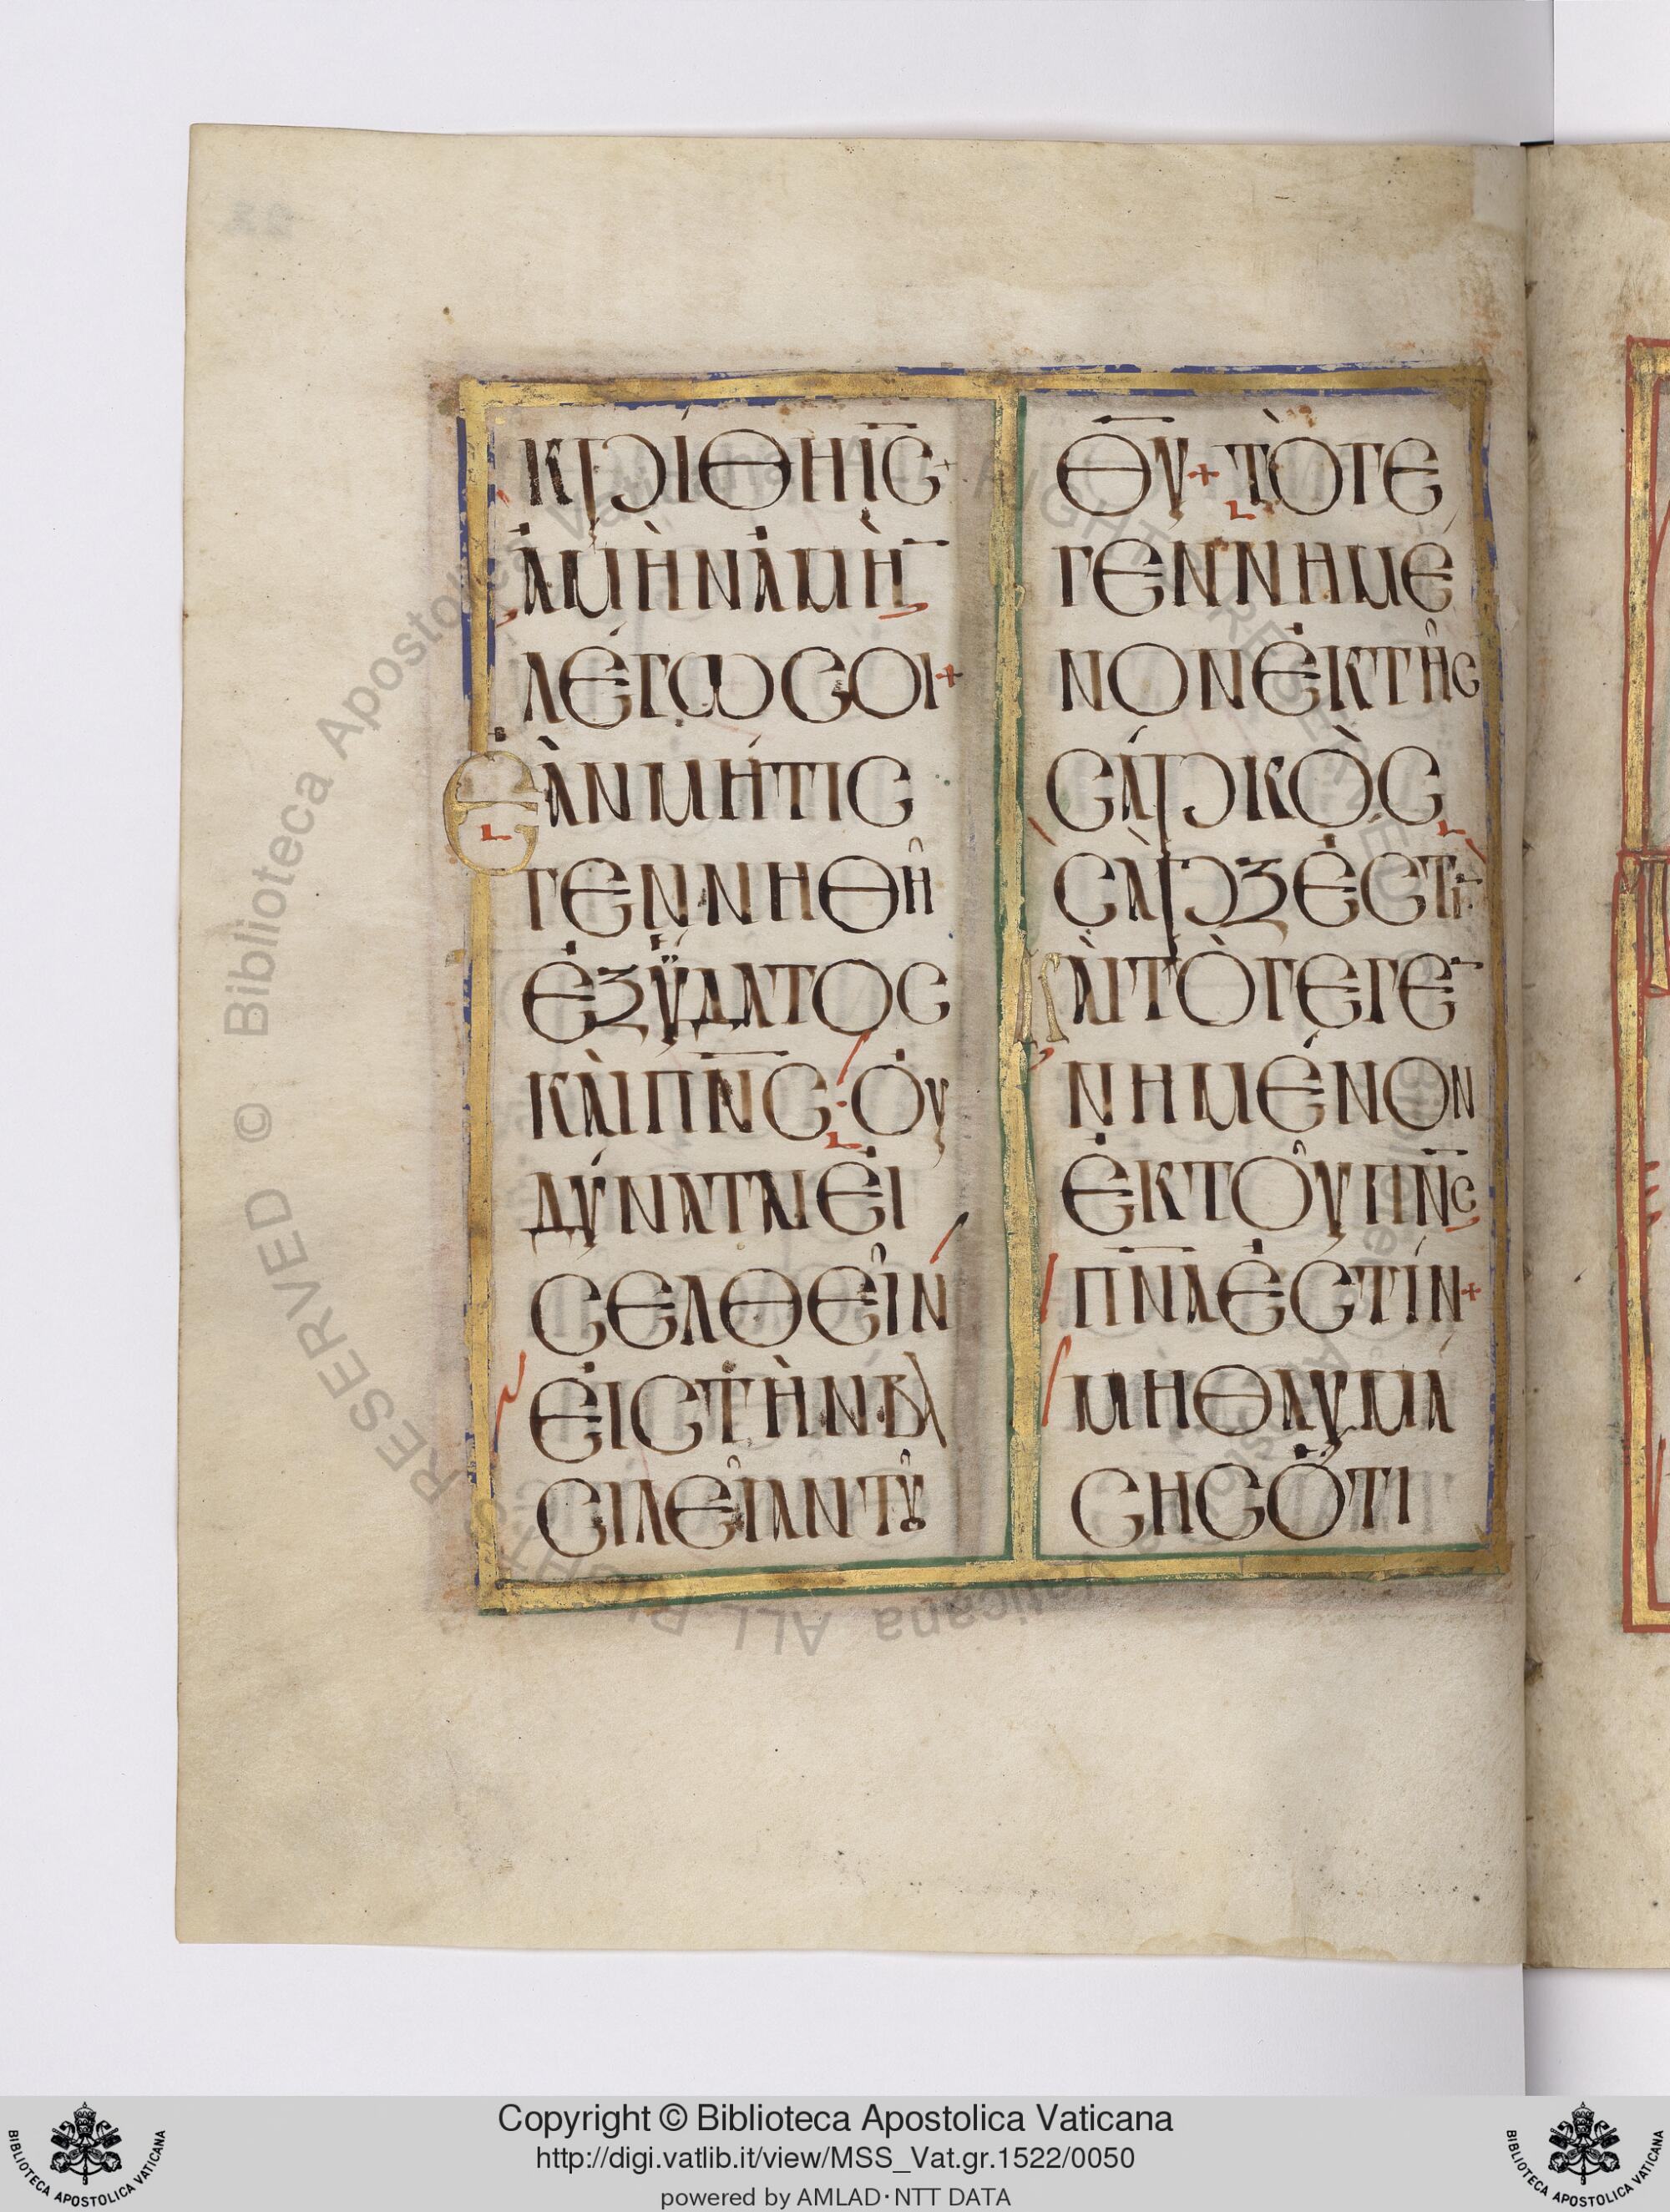 ΚΡΊΘΗΙ̅Ϲ̅+
ἈΜῊΝἈΜΗ̅
ΛΈΓΩϹΟΙ+
ἘᾺΝΜΉΤΙϹ
ΓΕΝΝΗΘΗ͂
ἘΞΫ́ΔΑΤΟϹ
ΚΑῚΠ̅Ν̅Ϲ̅·ΟΥ̓
ΔΎΝΑΤΑΙΕἸ
ϹΕΛΘΕΙ͂Ν
ΕἸϹΤῊΝΒΑ
ϹΙΛΕΊΑΝΤȢ͂
Θ̅Υ̅+ΤῸΓΕ
ΓΕΝΝΗΜΈ
ΝΟΝἘΚΤΗ͂Ϲ
ϹΑΡΚῸϹ
ϹᾺΡΞἘϹΤΙ̅
ΚΑῚΤῸΓΕΓΕ̅
ΝΗΜΈΝΟΝ
ἘΚΤΟΥ͂Π̅Ν̅Ϲ̅
Π̅Ν̅Α̅ἘϹΤΊΝ+
ΜῊΘΑΥΜΆ
ϹΗϹὍΤΙ
Copyright © Biblioteca Apostolica Vaticana
http://digi.vatlib.it/view/MSS_Vat.gr.1522/0050
powered by AMLAD·NTT DATA
BIBLIOTECA APOSTOLICA VATICANA
BIBLIOTECA APOSTOLICA VATICANA